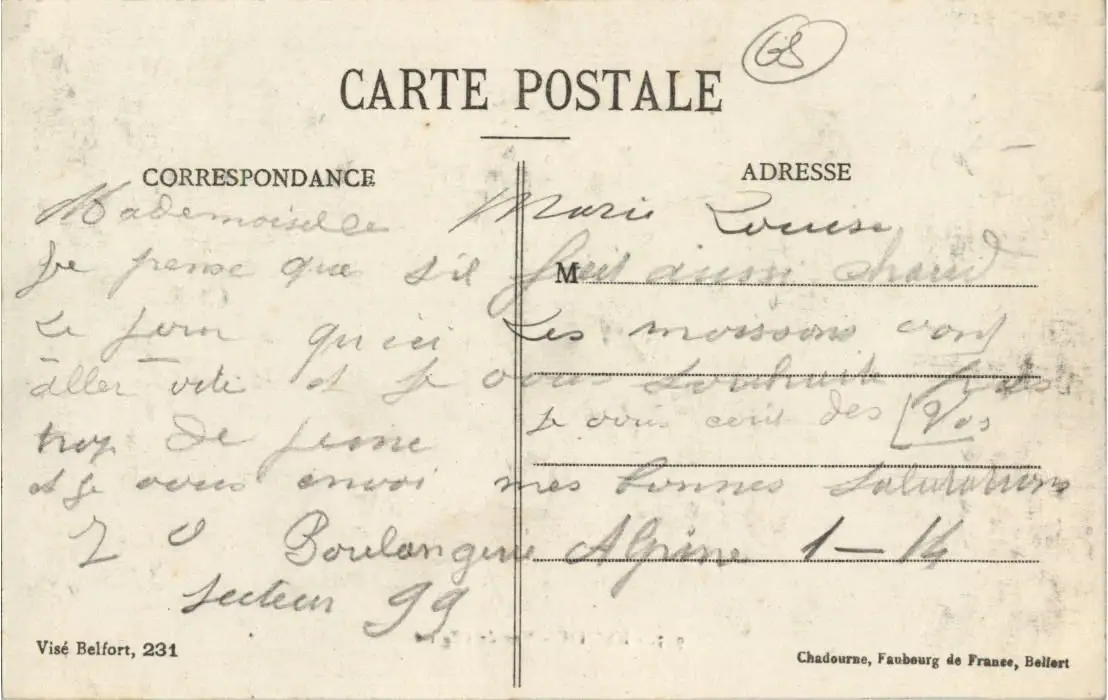 68
CARTE POSTALE
CORRESPONDANCE
ADRESSE
Mademoiselle Marie Louise
Je pense que s'il fait aussi chaud
M
Le jour qu'ici Les moissons vont
aller vite et je vous souhaite pas
trop de
Je vous ecrit des Vos
et je vous envoi mes bonnes salutations
Boulangerie Alpine 1 — 14
Secteur 99
Visé Belfort, 231
Chadourne, Faubourg de France, Belfort